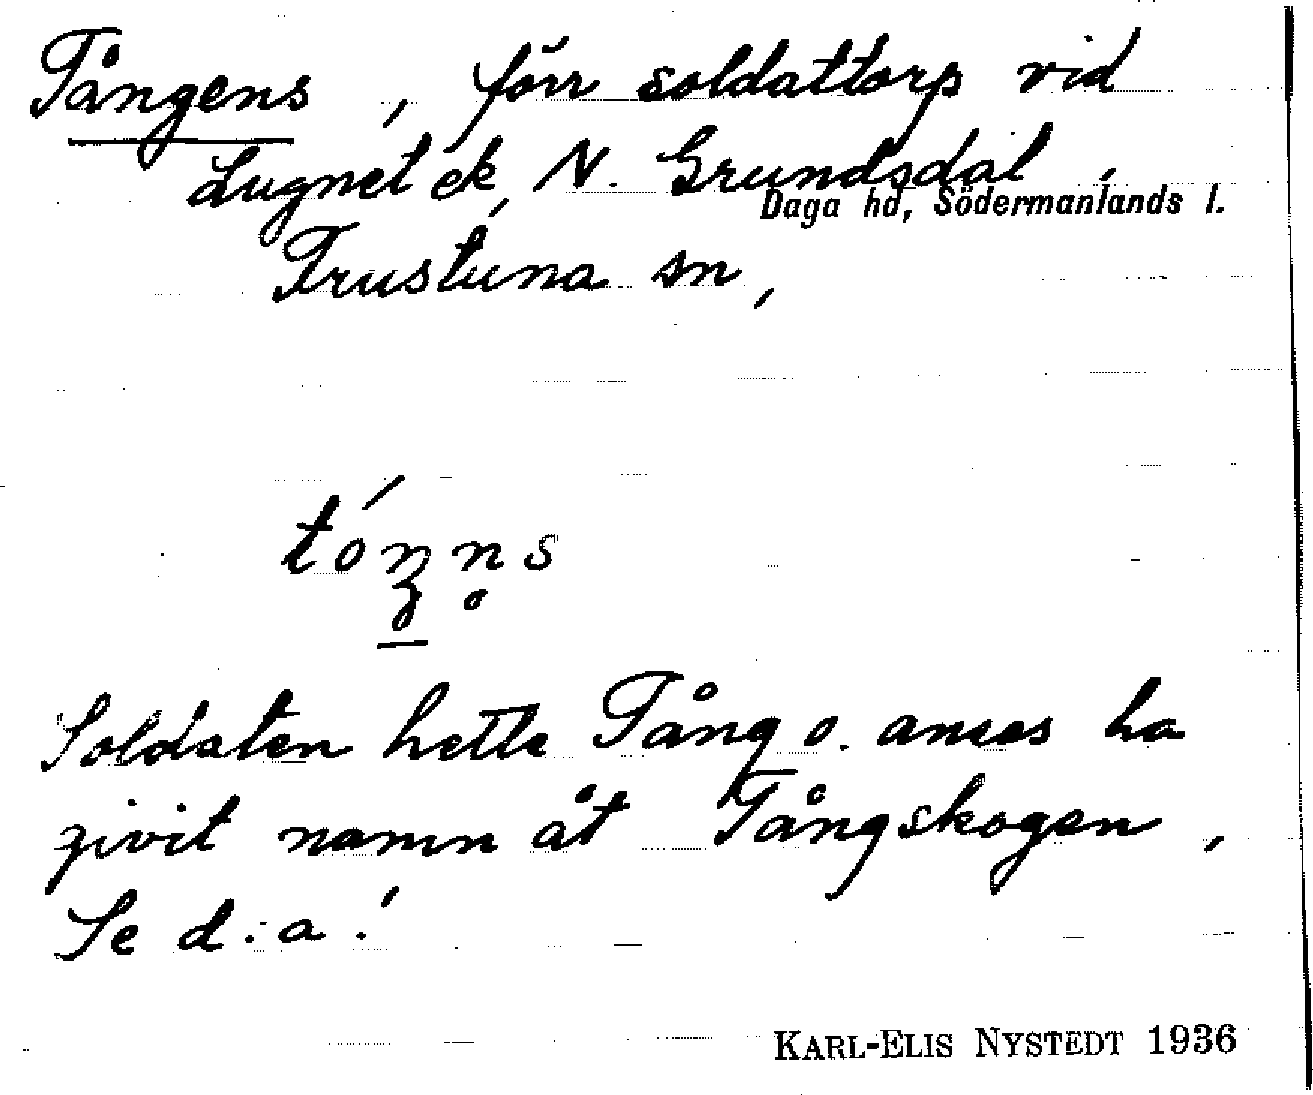 Tångens, förr soldattorp vid
Lugnet ek, N. Grundsdal,
Daga hd, Södermanlands l.
Frustuna sn,
Soldaten hette Tång o. anses ha
givit namn åt Tångskogen,
Se d:a!
KARL-ELIS NYSTEDT 1936